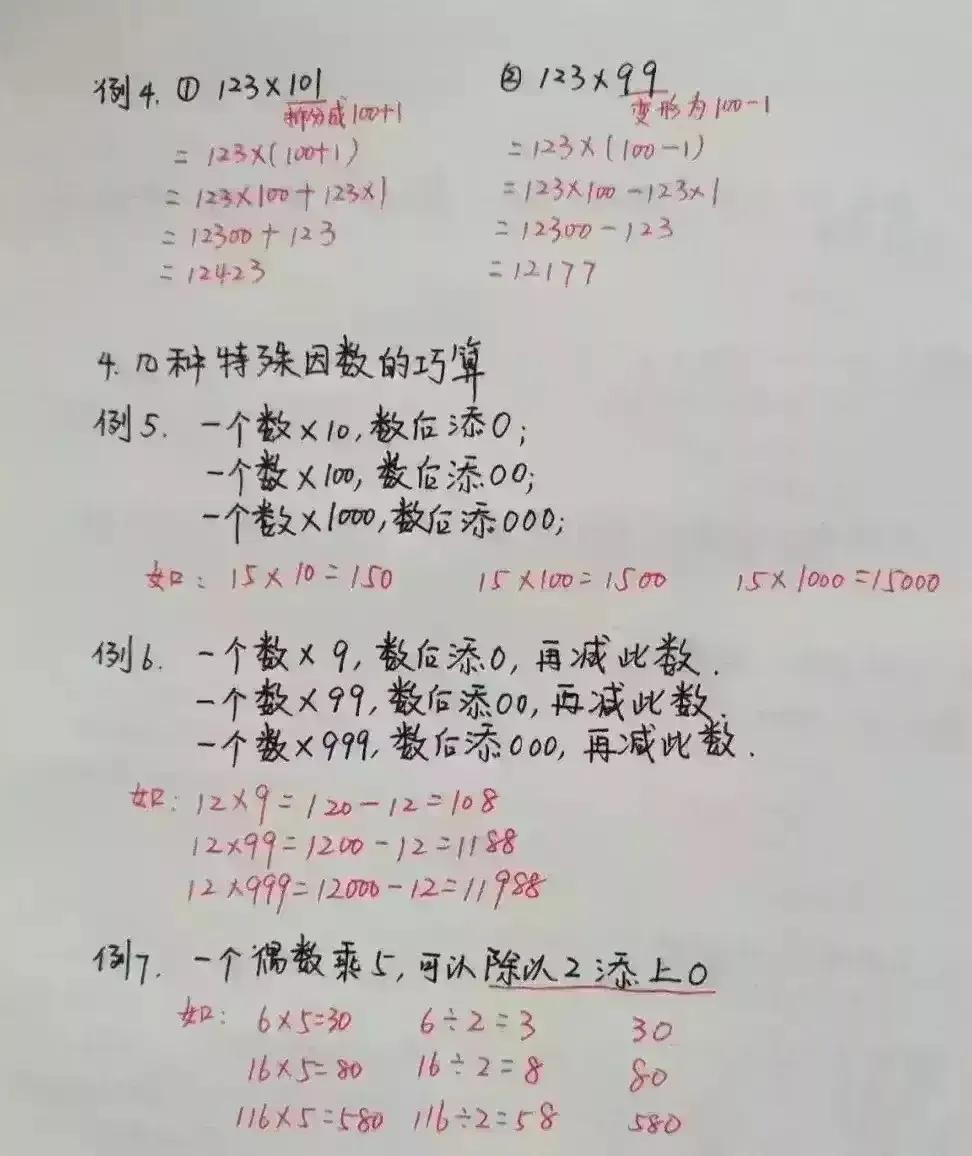 例4. ① 123×101
拆分成100+1
= 123×(100+1)
= 123×100+123×1
= 12300+123
= 12423
② 123×99
变形为100-1
= 123×(100-1)
= 123×100-123×1
= 12300-123
= 12177
4. 几种特殊因数的巧算
例5. 一个数×10,数后添0;
一个数×100,数后添00;
一个数×1000,数后添000;
如: 15×10=150 15×100=1500 15×1000=15000
例6. 一个数×9,数后添0,再减此数.
一个数×99,数后添00,再减此数.
一个数×999,数后添000,再减此数.
如: 12×9=120-12=108
12×99=1200-12=1188
12×999=12000-12=11988
例7. 一个偶数乘5,可以除以2添上0
如: 6×5=30 6÷2=3 30
16×5=80 16÷2=8 80
116×5=580 116÷2=58 580